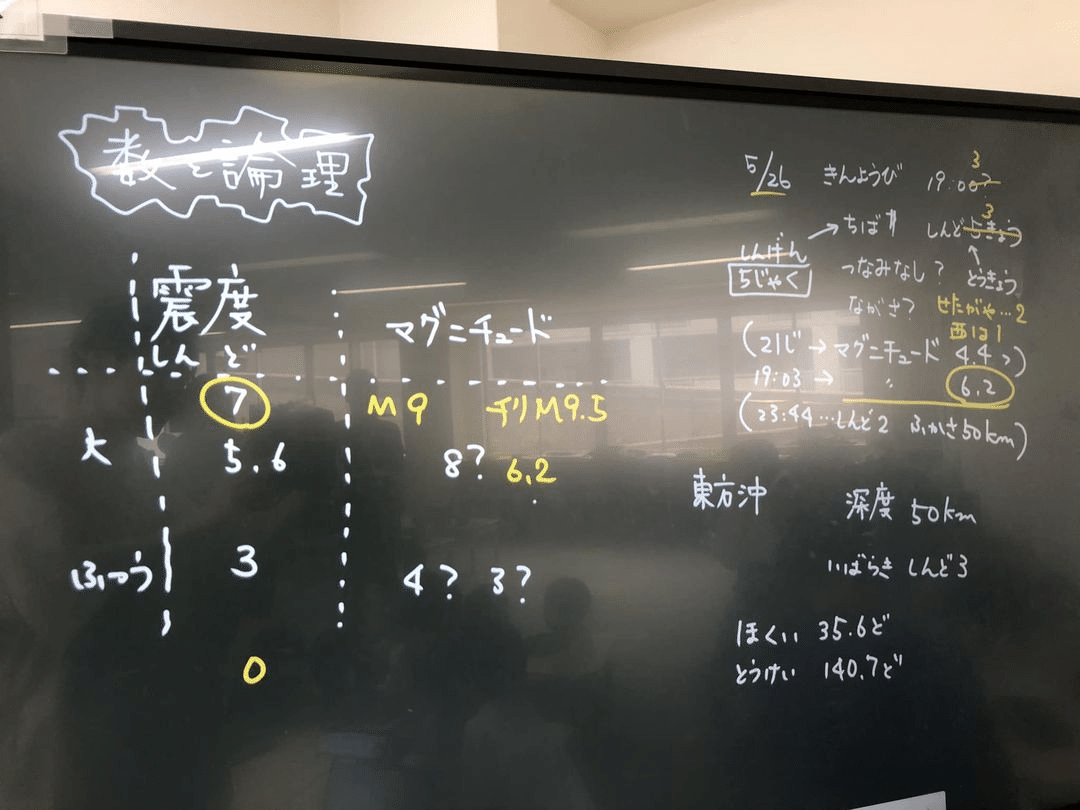 数と論理
震度
しんど
マグニチュード
7
M9 チリM9.5
大 5.6
8? 6.2
ふつう 3
4? 3?
0
5/26 きんようび 19:00? 3
ちば しんど 5きょう 3
しんげん
5じゃく
つなみなし? とうきょう
ながさ? せたがや…2
西は1
(21じ→マグニチュード 4.4
19:03→ 〃 6.2
(23:44…しんど2 ふかさ50km)
東方沖 深度 50km
いばらき しんど3
ほくい 35.6ど
とうけい 140.7ど